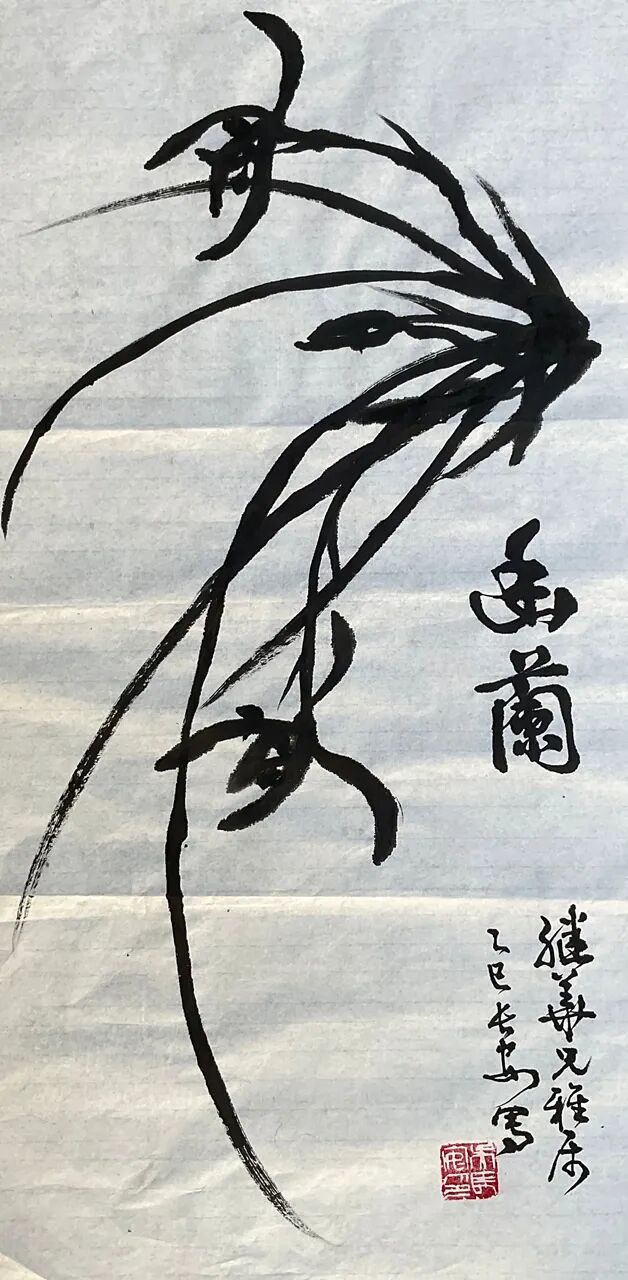 幽蘭
繼華兄雅屬
乙巳長安寫